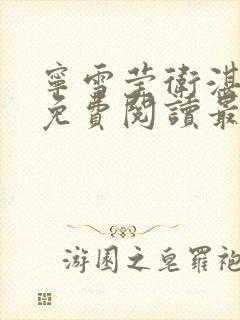 寧雪莹衛湛
免費閱讀最
游園之皂羅袍